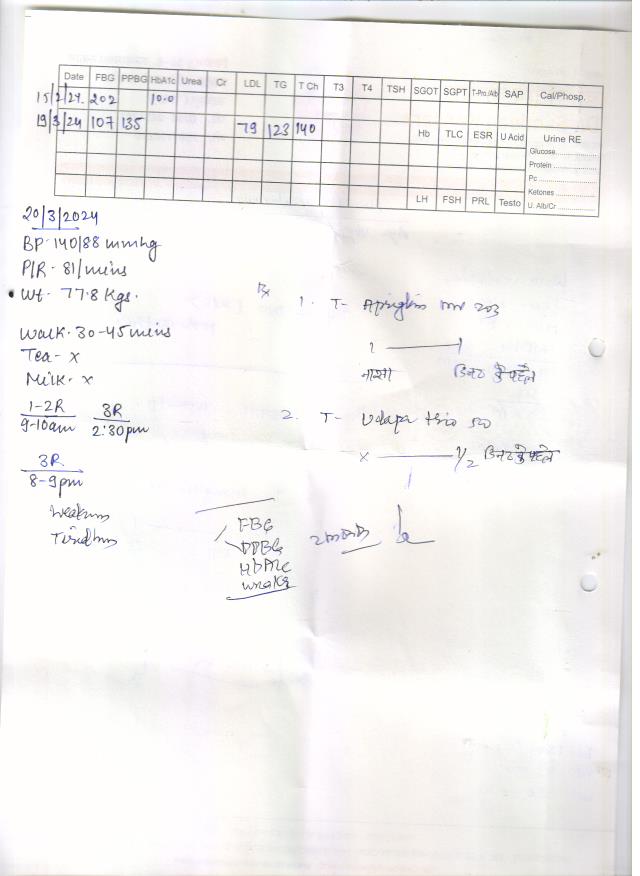 Date FBG PPBG HbA1c Urea Cr LDL TG T Ch T3 T4 TSH SGOT SGPT T-Pro./Ab SAP Cal/Phosp.
15/2/24. 202 10.0
19/3/24 107 135 79 123 140
Hb TLC ESR U Acid Urine RE
Glucose
Protein
Pc
Ketones
LH FSH PRL Testo U. Alb/Cr
20/3/2024
BP. 140/88 mmhg
P/R. 81/mins
Wt. 77.8 Kgs.
Rx
1. T-
1 1
Walk. 30-45 mins
Tea- x
Milk. x
नाश्ता
1-2R 3R
9-10am 2:30pm
2. T- Udapa trio 50
x 1/2
3R
8-9pm
FBG
PPBG
HbA1c